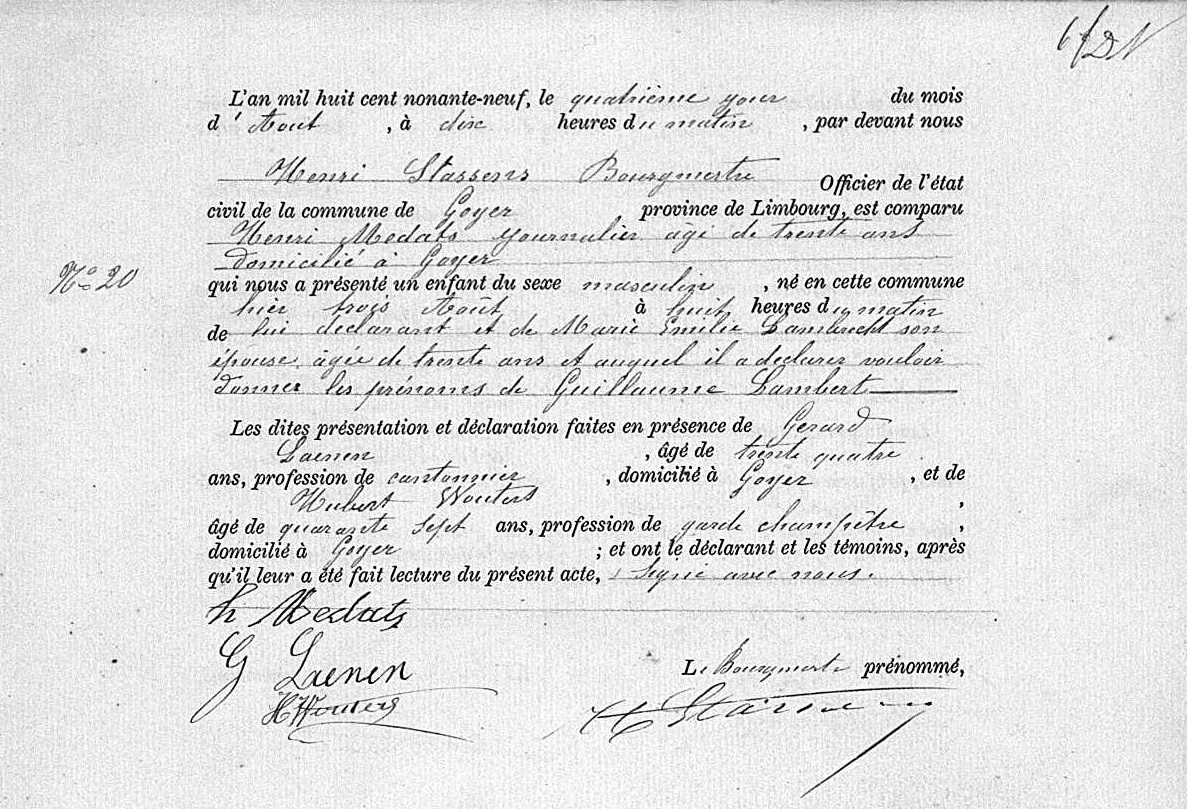 L'an mil huit cent nonante-neuf, le quatrième jour du mois
d'Aout, à dix heures du matin, par devant nous
Henri Stassens Bourgmestre Officier de l'état
civil de la commune de Goyer province de Limbourg, est comparu
Henri Medats journalier âgé de trente ans
domicilié à Goyer
N° 20
qui nous a présenté un enfant du sexe masculin, né en cette commune
hier trois Août à huit heures du matin
de lui déclarant et de Marie Emilie Lambrecht son
épouse, âgée de trente ans et auquel il a declarer vouloir
donner les prénoms de Guillaume Lambert
Les dites présentation et déclaration faites en présence de Gerard
Laenen, âgé de trente quatre
ans, profession de cantonnier, domicilié à Goyer, et de
Hubert Wouters,
âgé de quarante sept ans, profession de garde champêtre,
domicilié à Goyer; et ont le déclarant et les témoins, après
qu'il leur a été fait lecture du présent acte, signé avec nous.
h Medats
G Laenen
Le Bourgmestre prénommé,
H Wouters
H Stassens